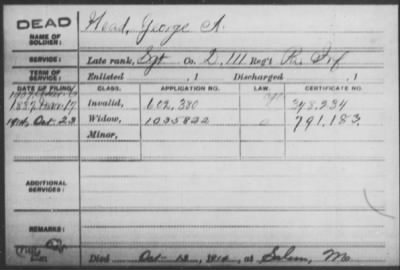 DEAD
NAME OF SOLDIER: Head, George A.
SERVICE: Late rank, Sgt Co. D, 111 Reg't Pa. Inf
TERM OF SERVICE: Enlisted , 1 Discharged , 1
DATE OF FILING. CLASS. APPLICATION NO. LAW. CERTIFICATE NO.
1887 Mar. 17 Invalid, 602,380 348,234
1914, Oct. 23 Widow, 1035822 791,183
Minor,
ADDITIONAL SERVICES:
REMARKS:
Died Oct 13, 1914, at Salem, Mo.